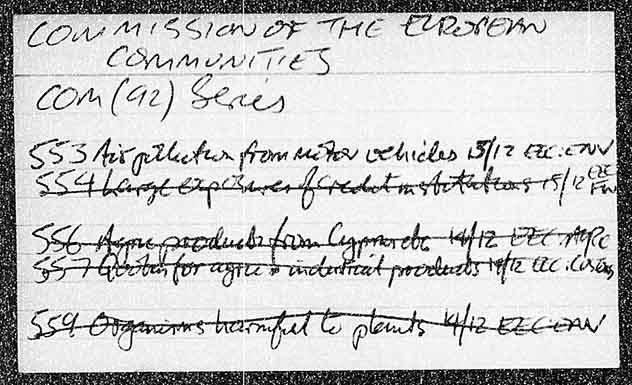 COMMISSION OF THE EUROPEAN
COMMUNITIES
COM (92) Series
553 Air pollution from motor vehicles 15/12 EEC:ENV
554 Large exposures of credit institutions 15/12 EEC
FIN
556 Agric products from Cyprus etc 14/12 EEC:AGRC
557 Quotas for agric & industrial products 14/12 EEC:
559 Organisms harmful to plants 14/12 EEC:ENV